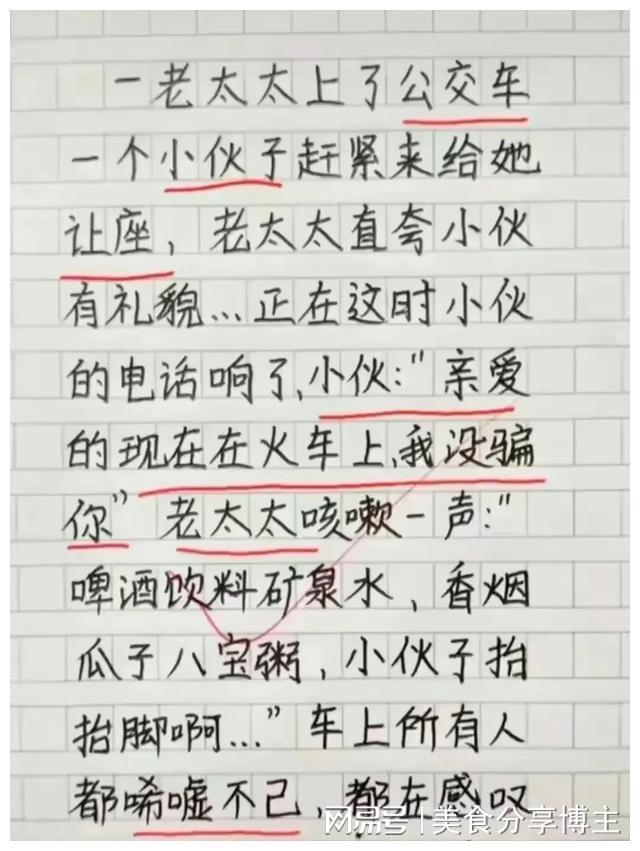 一老太太上了公交车
一个小伙子赶紧来给她
让座，老太太直夸小伙
有礼貌...正在这时小伙
的电话响了,小伙:"亲爱
的现在在火车上,我没骗
你"老太太咳嗽一声:"
啤酒饮料矿泉水，香烟
瓜子八宝粥，小伙子抬
抬脚啊..."车上所有人
都唏嘘不已，都在感叹
网易号 | 美食分享博主